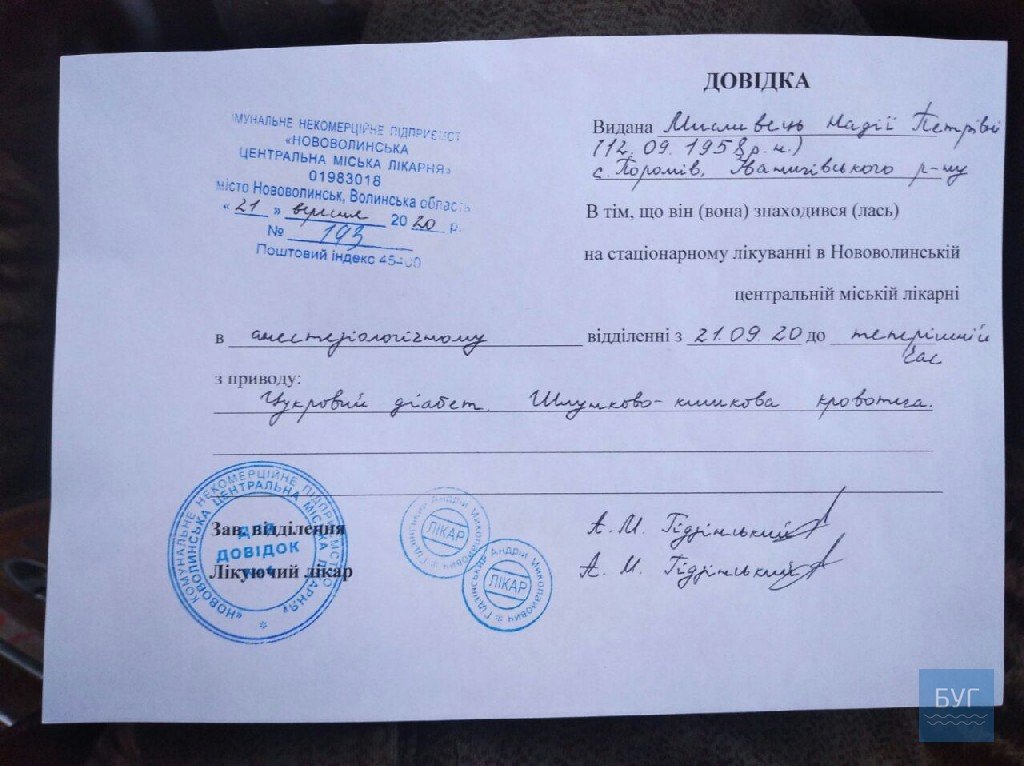 ДОВІДКА
КОМУНАЛЬНЕ НЕКОМЕРЦІЙНЕ ПІДПРИЄМСТ
«НОВОВОЛИНСЬКА
ЦЕНТРАЛЬНА МІСЬКА ЛІКАРНЯ»
01983018
місто Нововолинськ, Волинська область
« 21 » вересня 2020 р.
№ 193
Поштовий індекс 45400
Видана Мисливець Надії Петрівні
(12.09.1958р.н.)
с. Поромів, Іваничівського р-ну
В тім, що він (вона) знаходився (лась)
на стаціонарному лікуванні в Нововолинській
центральній міській лікарні
в анестезіологічному відділенні з 21.09.20 до теперішній
час
з приводу:
Цукровий діабет. Шлунково-кишкова кровотеча.
Зав. відділення А. М. Гідзінський
Лікуючий лікар А. М. Гідзінський
КОМУНАЛЬНЕ НЕКОМЕРЦІЙНЕ ПІДПРИЄМСТВО
«НОВОВОЛИНСЬКА ЦЕНТРАЛЬНА МІСЬКА ЛІКАРНЯ»
ДЛЯ
ДОВІДОК
Андрій Миколайович
ЛІКАР
Гідзінський Андрій Миколайович
ЛІКАР
БУГ